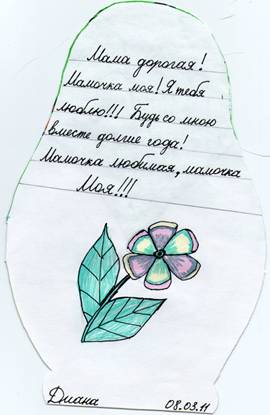 Мама дорогая!
Мамочка моя! Я тебя
люблю!!! Будь со мною
вместе долгие года!
Мамочка любимая, мамочка
Моя!!!
Диана 08.03.11